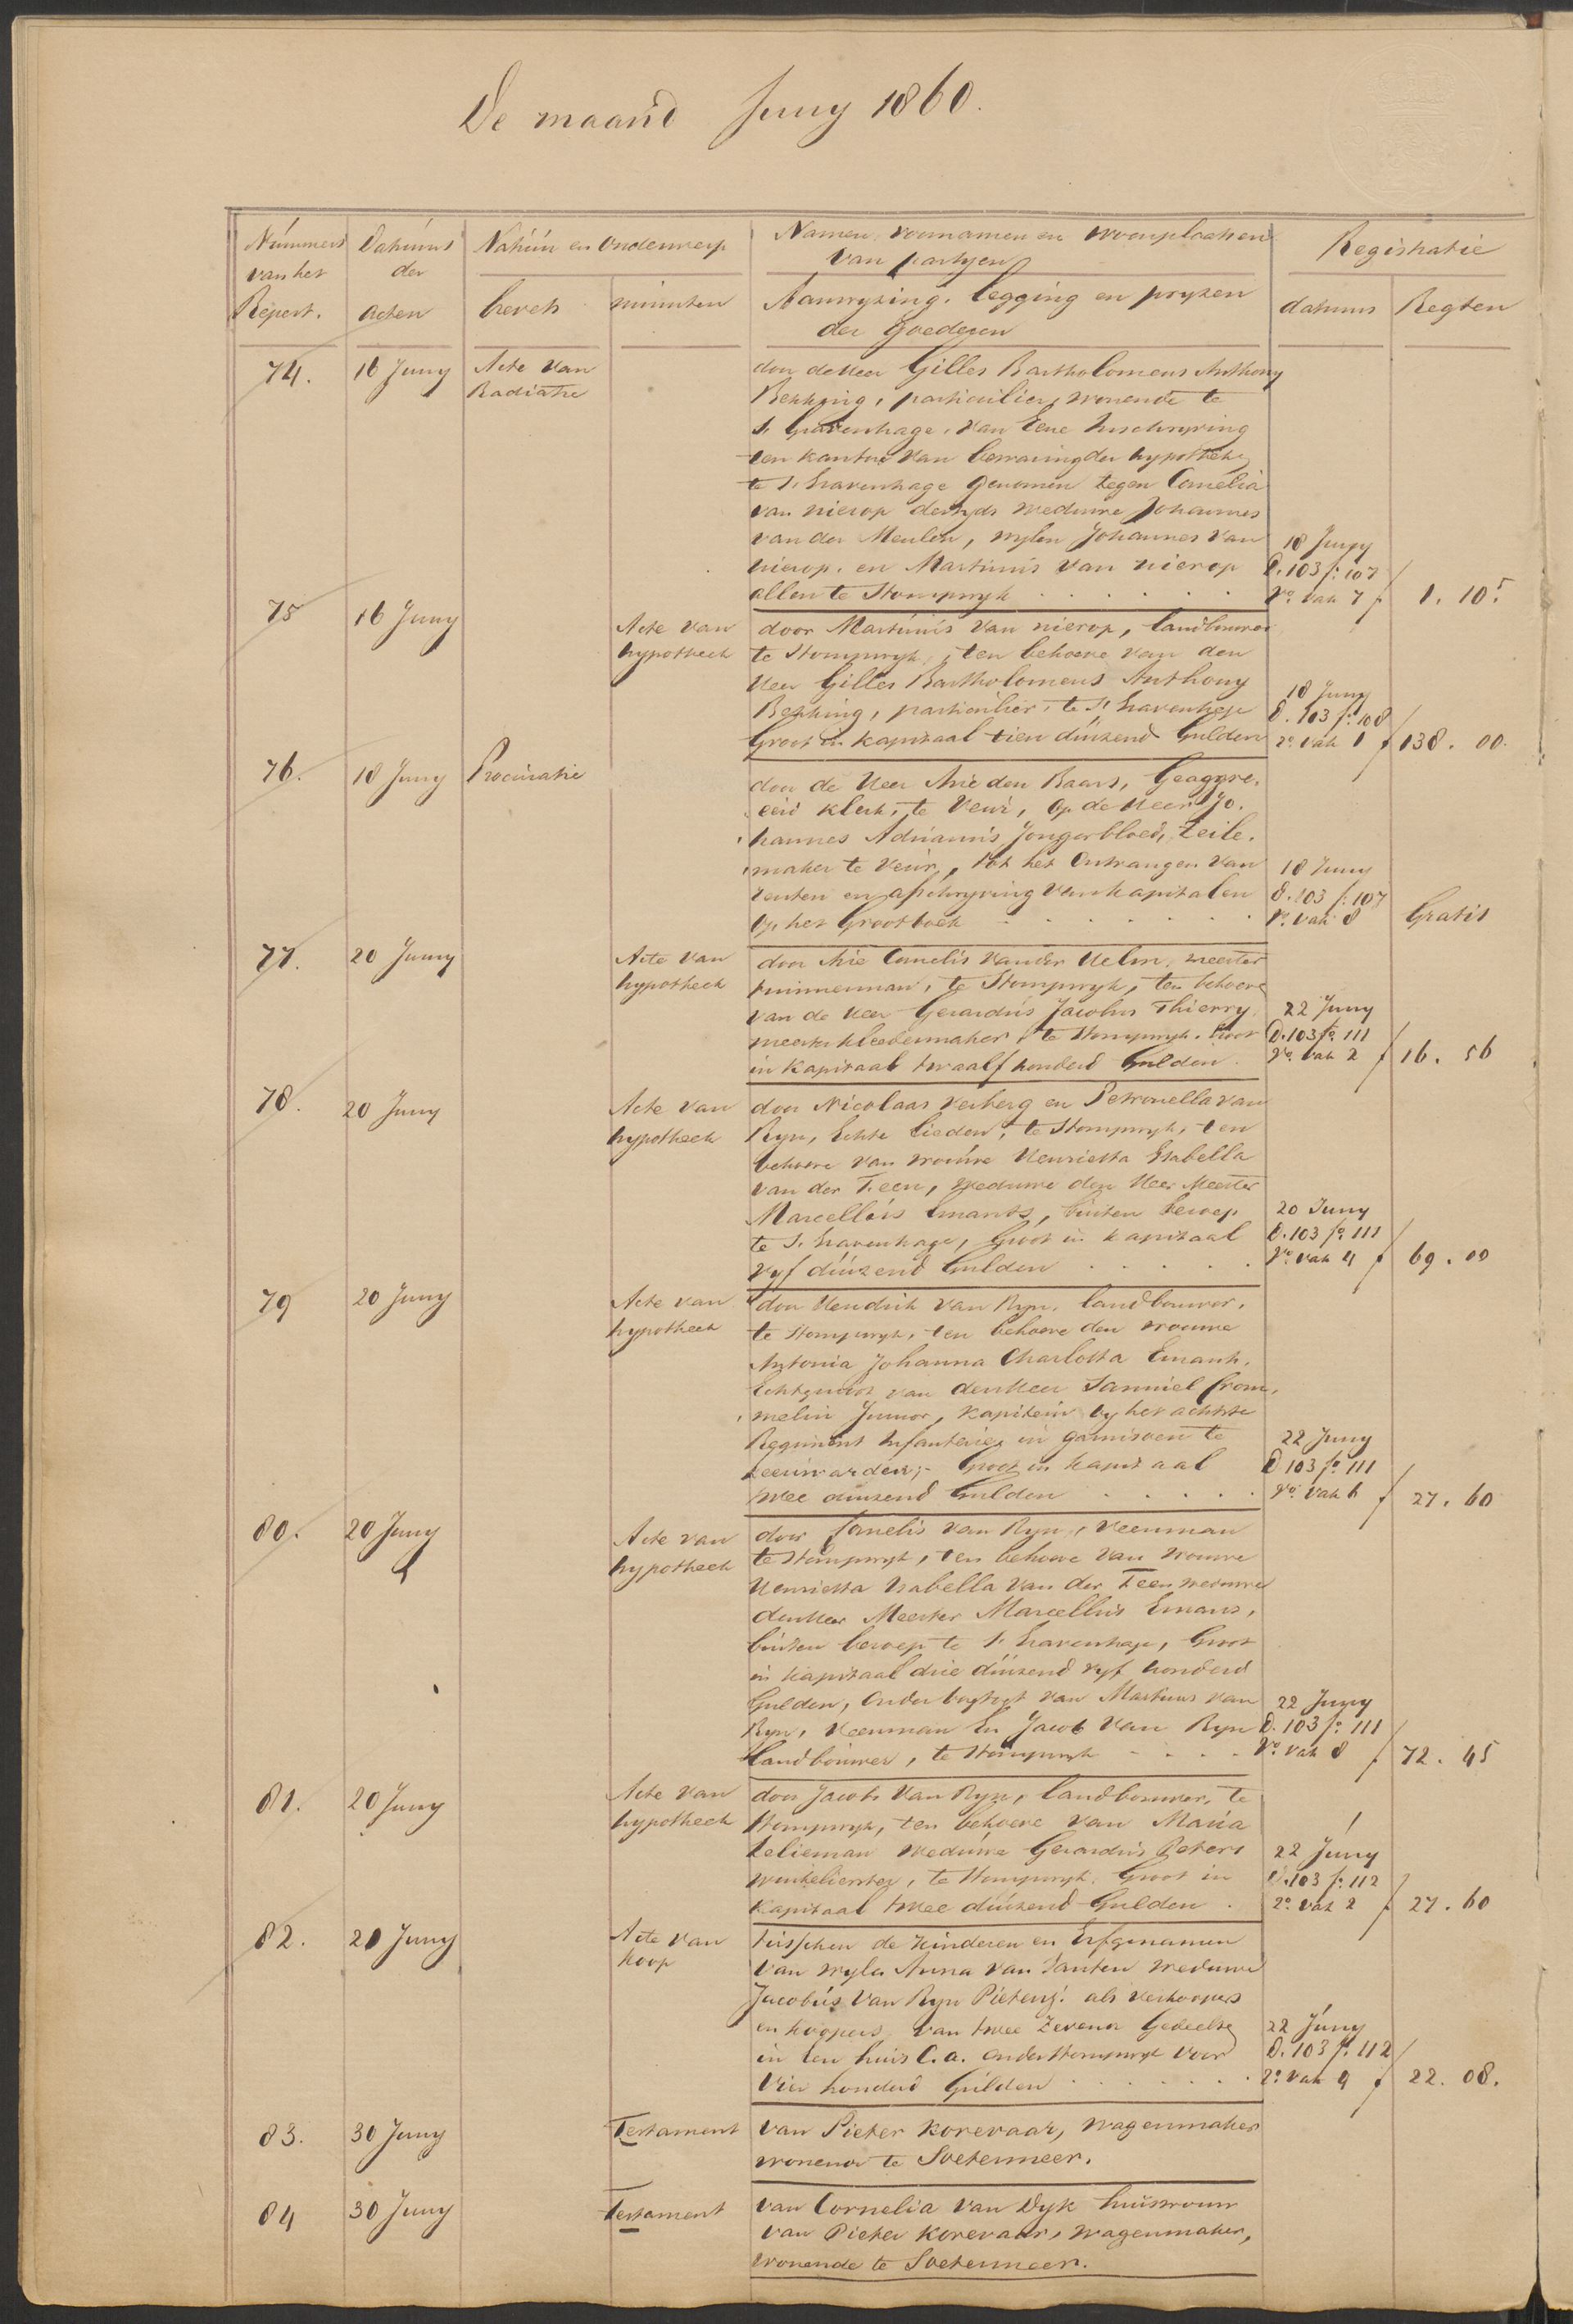 De maand Juny 1860.
Nummers van het Repert.
Datums der acten
Natuur en Onderwerp
brevets
minuten
Namen, voornamen en woonplaatsen van partyen
Aanwyzing, legging en pryzen der Goederen
Registratie
datums
Regten
74.
16 Juny
Acte van
Radiatie
door de Heer Gilles Bartholomeus Anthony
Bekking, particulier, wonende te
S. Gravenhage, van Eene Inschryving
ten kantore van bewaring der hypotheken
te S. Gravenhage genomen tegen Cornelia
van Nierop destyds weduwe Johannes
van der Meulen, wylen Johannes van
Nierop, en Martinus van Nierop
allen te Stompwyk
18 Juny
D. 103 f. 107
Vo. vak 7 f 1. 10 5.
75
16 Juny
Acte van
hypotheek
door Martinus van Nierop, landbouwer
te Stompwyk, ten behoeve van den
Heer Gilles Bartholomeus Anthony
Bekking, particulier, te S. Gravenhage
Groot in kapitaal tien duizend Gulden
18 Juny
D. 103 f. 108
Ro. vak 1 f 138. 00.
76.
18 Juny
Procuratie
door de Heer Arie den Baars, Geaggre.
eerd klerk, te Veur, op de Heer Jo.
hannes Adrianus Jongerbloed, Zeile.
maker te Veur, tot het Ontvangen van
renten en afschryving van kapitalen
op het Grootboek
18 Juny
D. 103 f. 107
Vo. vak 8
Gratis
77.
20 Juny
Acte van
hypotheek
door Arie Cornelis van der Helm, meester
timmerman, te Stompwyk, ten behoeve
van de Heer Gerardus Jacobus Thierry
meester kleedermaker, te Stompwyk. Groot
in Kapitaal twaalf honderd Gulden
22 Juny
D. 103 fo. 111
Ro. vak 2 f 16. 56
78.
20 Juny
Acte van
hypotheek
door Nicolaas Verberg en Petronella van
Ryn, Echte lieden, te Stompwyk, ten
behoeve van vrouwe Henrietta Isabella
van der Teen, weduwe den Heer Meester
Marcellus Emants, buiten beroep
te S. Gravenhage, Groot in kapitaal
vyf duizend Gulden
20 Juny
D. 103 fo. 111
Vo. vak 4 f 69. 00
79
20 Juny
Acte van
hypotheek
door Hendrik van Ryn, landbouwer,
te Stompwyk, ten behoeve den vrouwe
Antonia Johanna Charlotta Emants,
Echtgenoot van den Heer Samuel Crom.
melin Junior, kapitein by het achtste
Regiment Infanterie, in garnisoen te
Leeuwarden, Groot in kapitaal
twee duizend Gulden
22 Juny
D 103 fo. 111
Vo. vak 6 f 27. 60
80.
20 Juny
Acte van
hypotheek
door Cornelis van Ryn, veenman
te Stompwyk, ten behoeve van vrouwe
Henrietta Isabella van der Teen weduwe
den Heer Meester Marcellus Emans,
buiten beroep te S. Gravenhage, Groot
in kapitaal drie duizend vyf honderd
Gulden, onder borgtogt van Martinus van
Ryn, veenman En Jacob van Ryn
landbouwer, te Stompwyk
22 Juny
D. 103 fo. 111
Vo. vak 8 f 72. 45
81.
20 Juny
Acte van
hypotheek
door Jacob van Ryn, landbouwer, te
Stompwyk, ten behoeve van Maria
Zelieman weduwe Gerardus Peters
winkelierster, te Stompwyk. Groot in
kapitaal twee duizend Gulden
22 Juny
D. 103 f. 112
Ro. vak 2 f 27. 60
82.
20 Juny
Acte van
koop
tusschen de kinderen en Erfgenamen
van wyle Anna van Santen weduwe
Jacobus van Ryn Pietersz. als verkoopers
en koopers, van twee Zevende Gedeelte
in een huis C.a. onder Stompwyk voor
vier honderd Gulden
22 Juny
D. 103 f. 112
Ro. vak 4 f 22. 08.
83.
30 Juny
Testament
van Pieter Korevaar, wagenmaker
wonende te Soetermeer.
84
30 Juny
Testament
van Cornelia van Dyk huisvrouw
van Pieter Korevaar, wagenmaker,
wonende te Soetermeer.